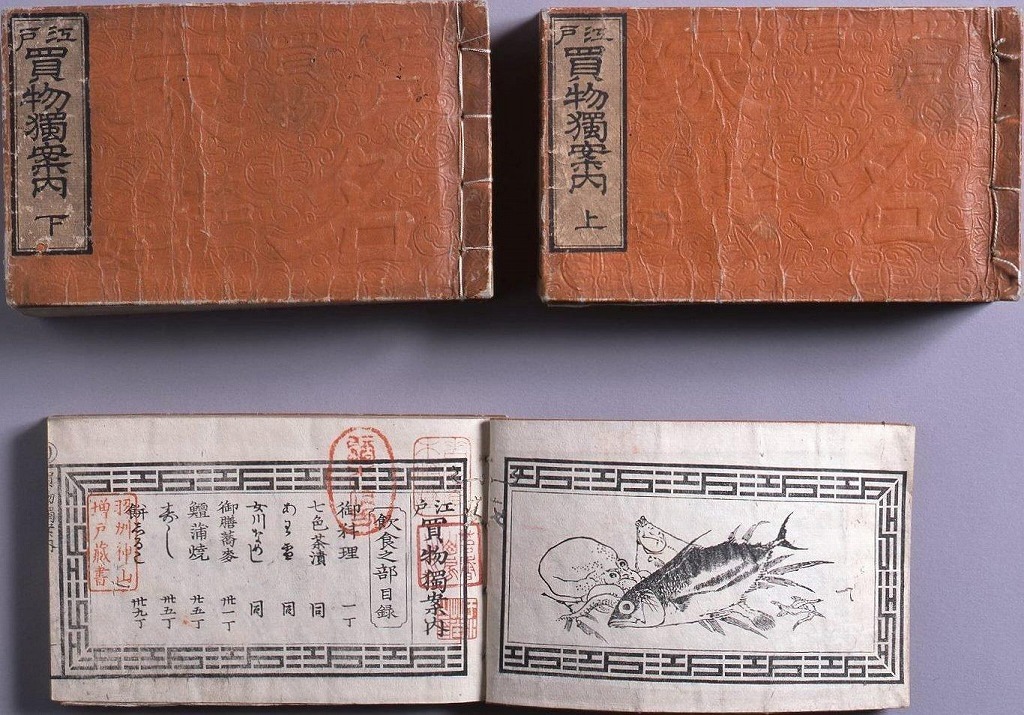 江戸
買物獨案内
上
江戸
買物獨案内
下
江戸
買物獨案内
飲食之部目録
御料理 一丁
七色茶漬 同
あわ雪 同
女川なめし 同
御膳蕎麥 廿一丁
鱣蒲焼 廿五丁
すし 卅五丁
卅九丁
羽州神山
増戸蔵書